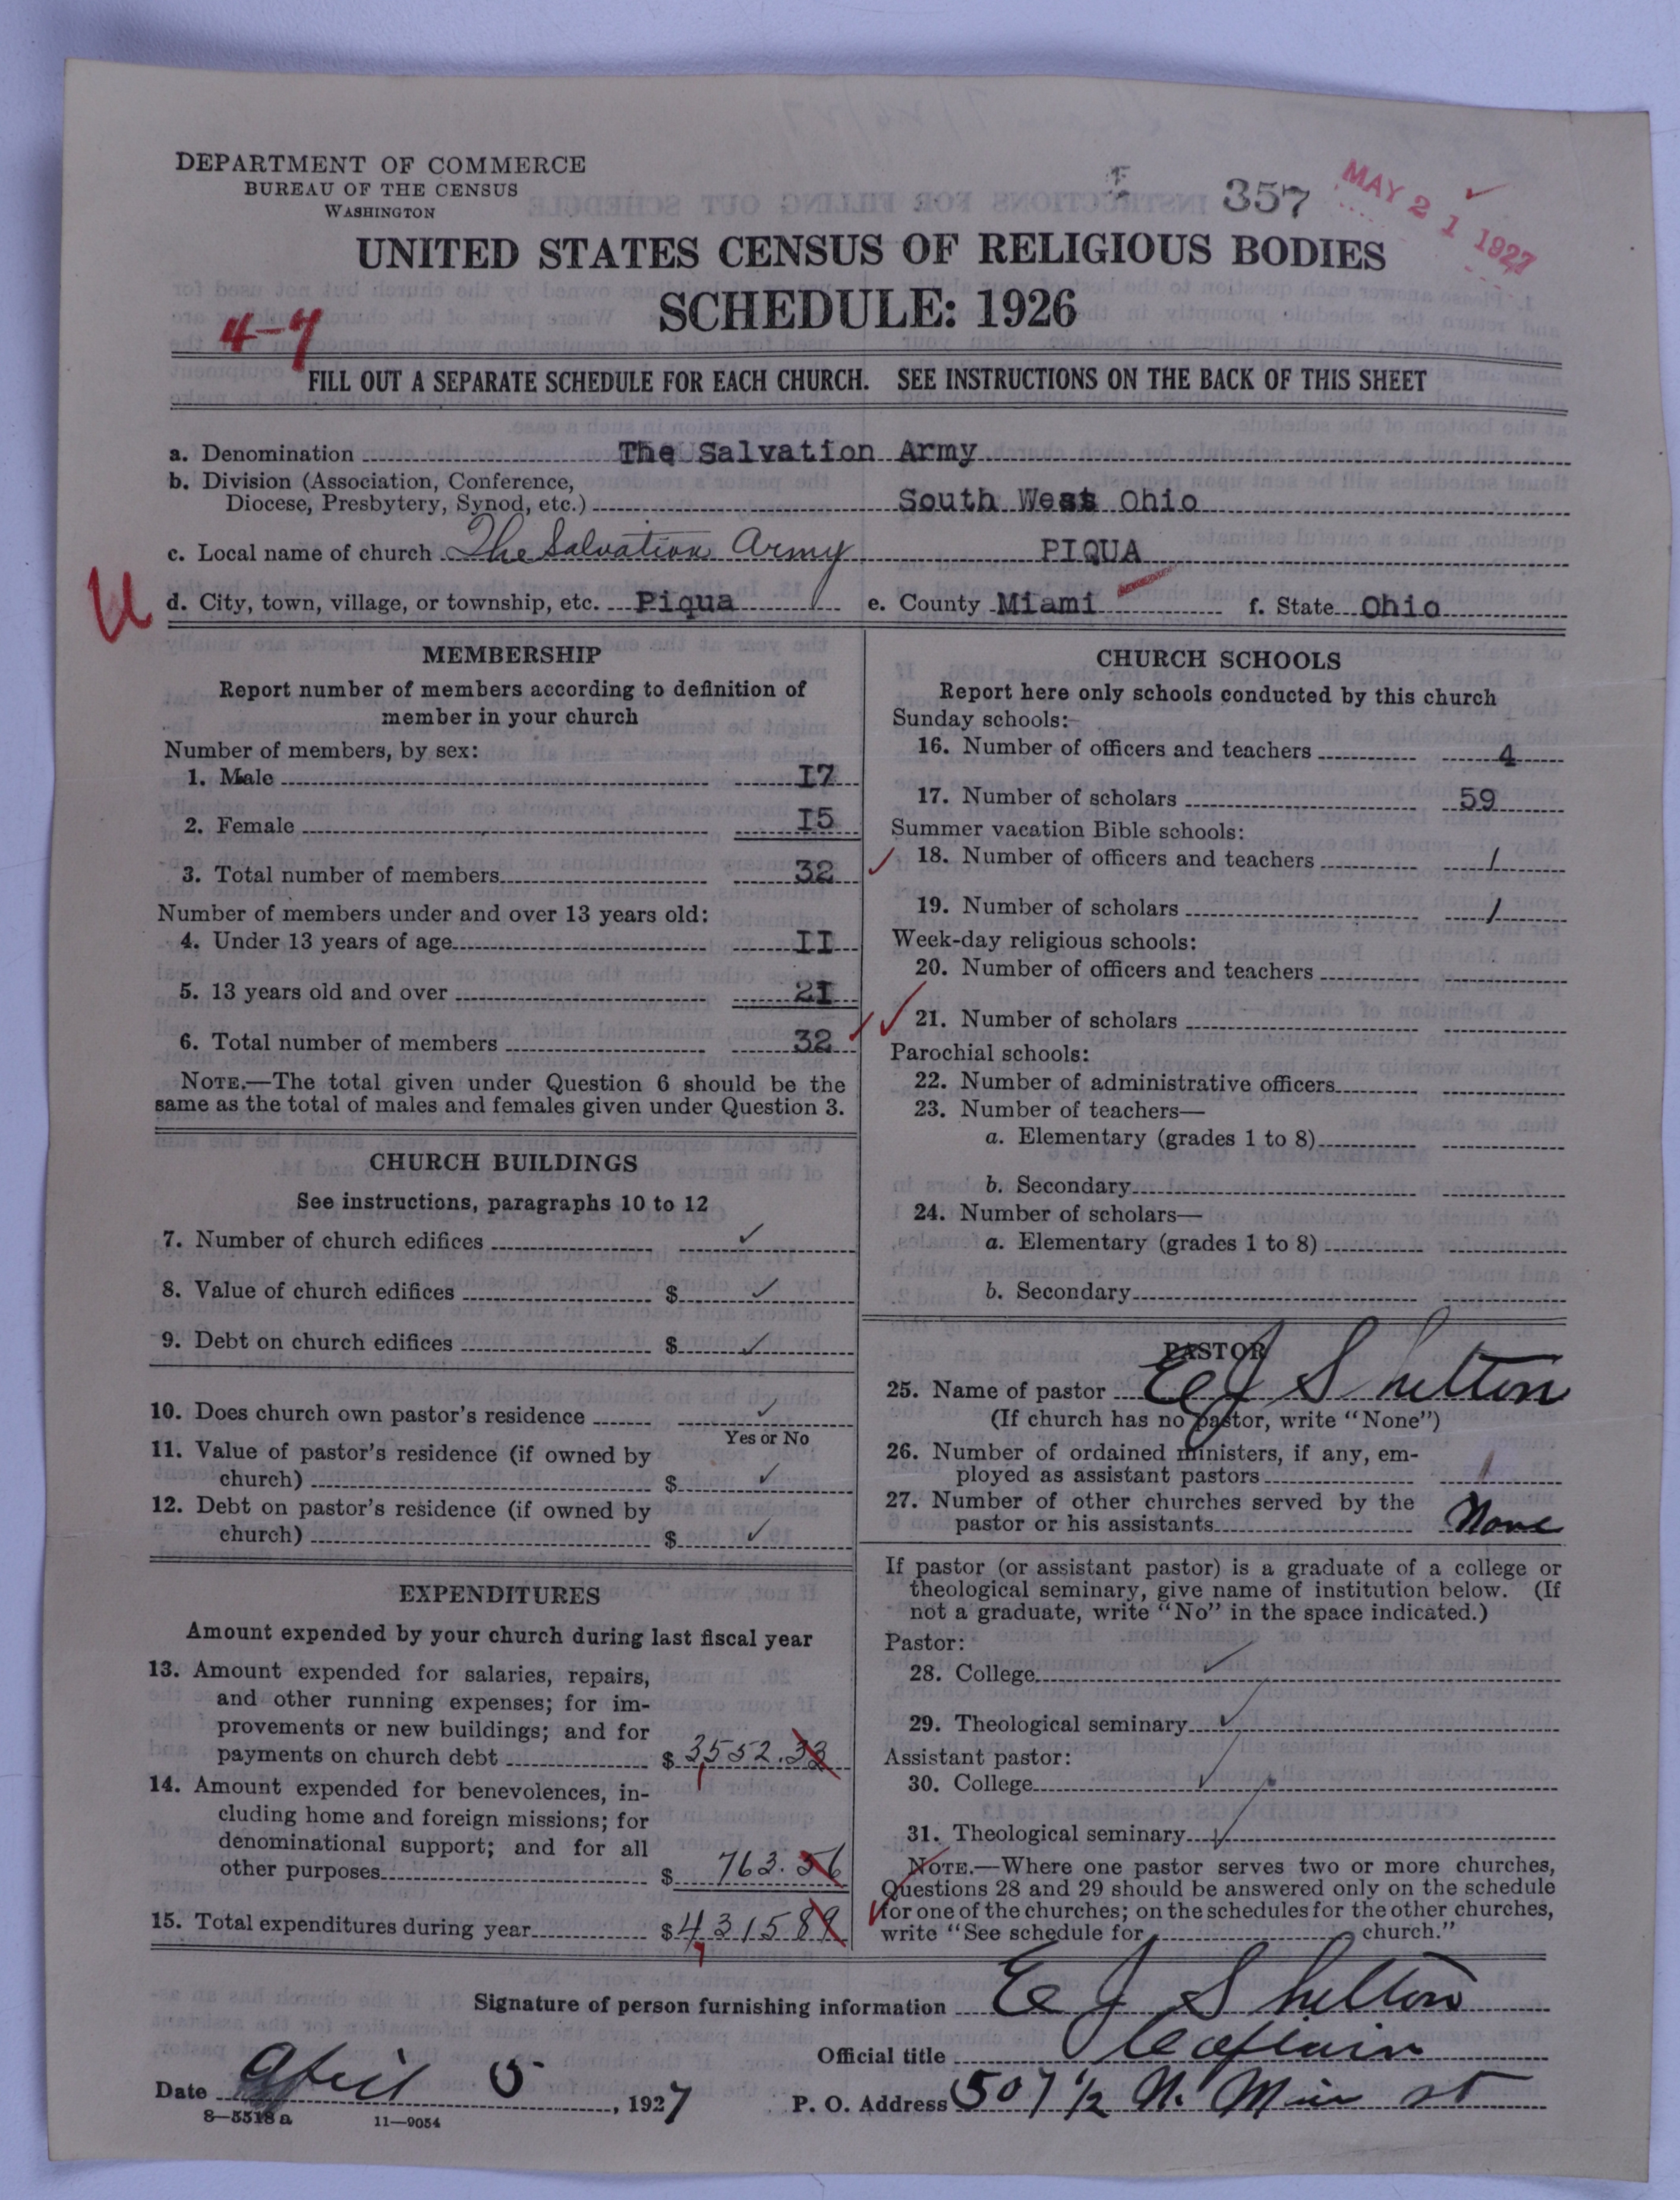 DEPARTMENT OF COMMERCE
BUREAU OF THE CENSUS
WASHINGTON
357
MAY 21 1927
UNITED STATES CENSUS OF RELIGIOUS BODIES
SCHEDULE: 1926
4-7
FILL OUT A SEPARATE SCHEDULE FOR EACH CHURCH. SEE INSTRUCTIONS ON THE BACK OF THIS SHEET
a. Denomination The Salvation Army
b. Division (Association, Conference,
Diocese, Presbytery, Synod, etc.) South West Ohio
c. Local name of church The Salvation Army PIQUA
U
d. City, town, village, or township, etc. Piqua e. County Miami f. State Ohio
MEMBERSHIP
Report number of members according to definition of
member in your church
Number of members, by sex:
1. Male I7
2. Female I5
3. Total number of members 32
Number of members under and over 13 years old:
4. Under 13 years of age II
5. 13 years old and over 2I
6. Total number of members 32
NOTE.—The total given under Question 6 should be the
same as the total of males and females given under Question 3.
CHURCH BUILDINGS
See instructions, paragraphs 10 to 12
7. Number of church edifices ✓
8. Value of church edifices $ ✓
9. Debt on church edifices $ ✓
10. Does church own pastor's residence ✓
Yes or No
11. Value of pastor's residence (if owned by
church) $ ✓
12. Debt on pastor's residence (if owned by
church) $ ✓
EXPENDITURES
Amount expended by your church during last fiscal year
13. Amount expended for salaries, repairs,
and other running expenses; for im-
provements or new buildings; and for
payments on church debt $ 3,552.33
14. Amount expended for benevolences, in-
cluding home and foreign missions; for
denominational support; and for all
other purposes $ 763.56
15. Total expenditures during year $ 4,315 89
CHURCH SCHOOLS
Report here only schools conducted by this church
Sunday schools:
16. Number of officers and teachers 4
17. Number of scholars 59
Summer vacation Bible schools:
18. Number of officers and teachers /
19. Number of scholars /
Week-day religious schools:
20. Number of officers and teachers
21. Number of scholars
Parochial schools:
22. Number of administrative officers
23. Number of teachers—
a. Elementary (grades 1 to 8)
b. Secondary
24. Number of scholars—
a. Elementary (grades 1 to 8)
b. Secondary
PASTOR
25. Name of pastor E J Shelton
(If church has no pastor, write "None")
26. Number of ordained ministers, if any, em-
ployed as assistant pastors /
27. Number of other churches served by the
pastor or his assistants None
If pastor (or assistant pastor) is a graduate of a college or
theological seminary, give name of institution below. (If
not a graduate, write "No" in the space indicated.)
Pastor:
28. College ✓
29. Theological seminary ✓
Assistant pastor:
30. College ✓
31. Theological seminary ✓
NOTE.—Where one pastor serves two or more churches,
Questions 28 and 29 should be answered only on the schedule
for one of the churches; on the schedules for the other churches,
write "See schedule for church."
Signature of person furnishing information E J Shelton
Official title Captain
Date April 5, 1927 P. O. Address 507 1/2 N. Main st
8-5518a 11-9054